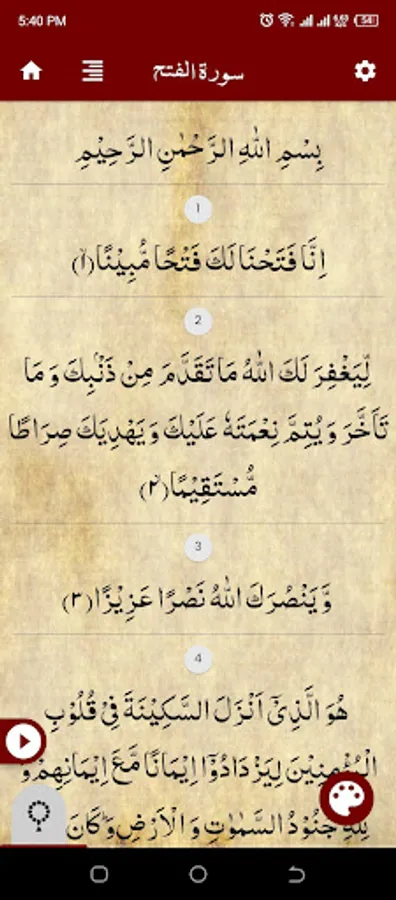 5:40 PM
54
سورة الفتح
بِسْمِ اللهِ الرَّحْمٰنِ الرَّحِيْمِ
1
اِنَّا فَتَحْنَا لَكَ فَتْحًا مُّبِيْنًا ۙ﴿۱﴾
2
لِّيَغْفِرَ لَكَ اللهُ مَا تَقَدَّمَ مِنْ ذَنْۢبِكَ وَ مَا
تَاَخَّرَ وَ يُتِمَّ نِعْمَتَهٗ عَلَيْكَ وَ يَهْدِيَكَ صِرَاطًا
مُّسْتَقِيْمًا ۙ﴿۲﴾
3
وَّ يَنْصُرَكَ اللهُ نَصْرًا عَزِيْزًا ﴿۳﴾
4
هُوَ الَّذِيْۤ اَنْزَلَ السَّكِيْنَةَ فِيْ قُلُوْبِ
الْمُؤْمِنِيْنَ لِيَزْدَادُوْۤا اِيْمَانًا مَّعَ اِيْمَانِهِمْ ؕ وَ
لِلّٰهِ جُنُوْدُ السَّمٰوٰتِ وَ الْاَرْضِ ؕ وَ كَانَ